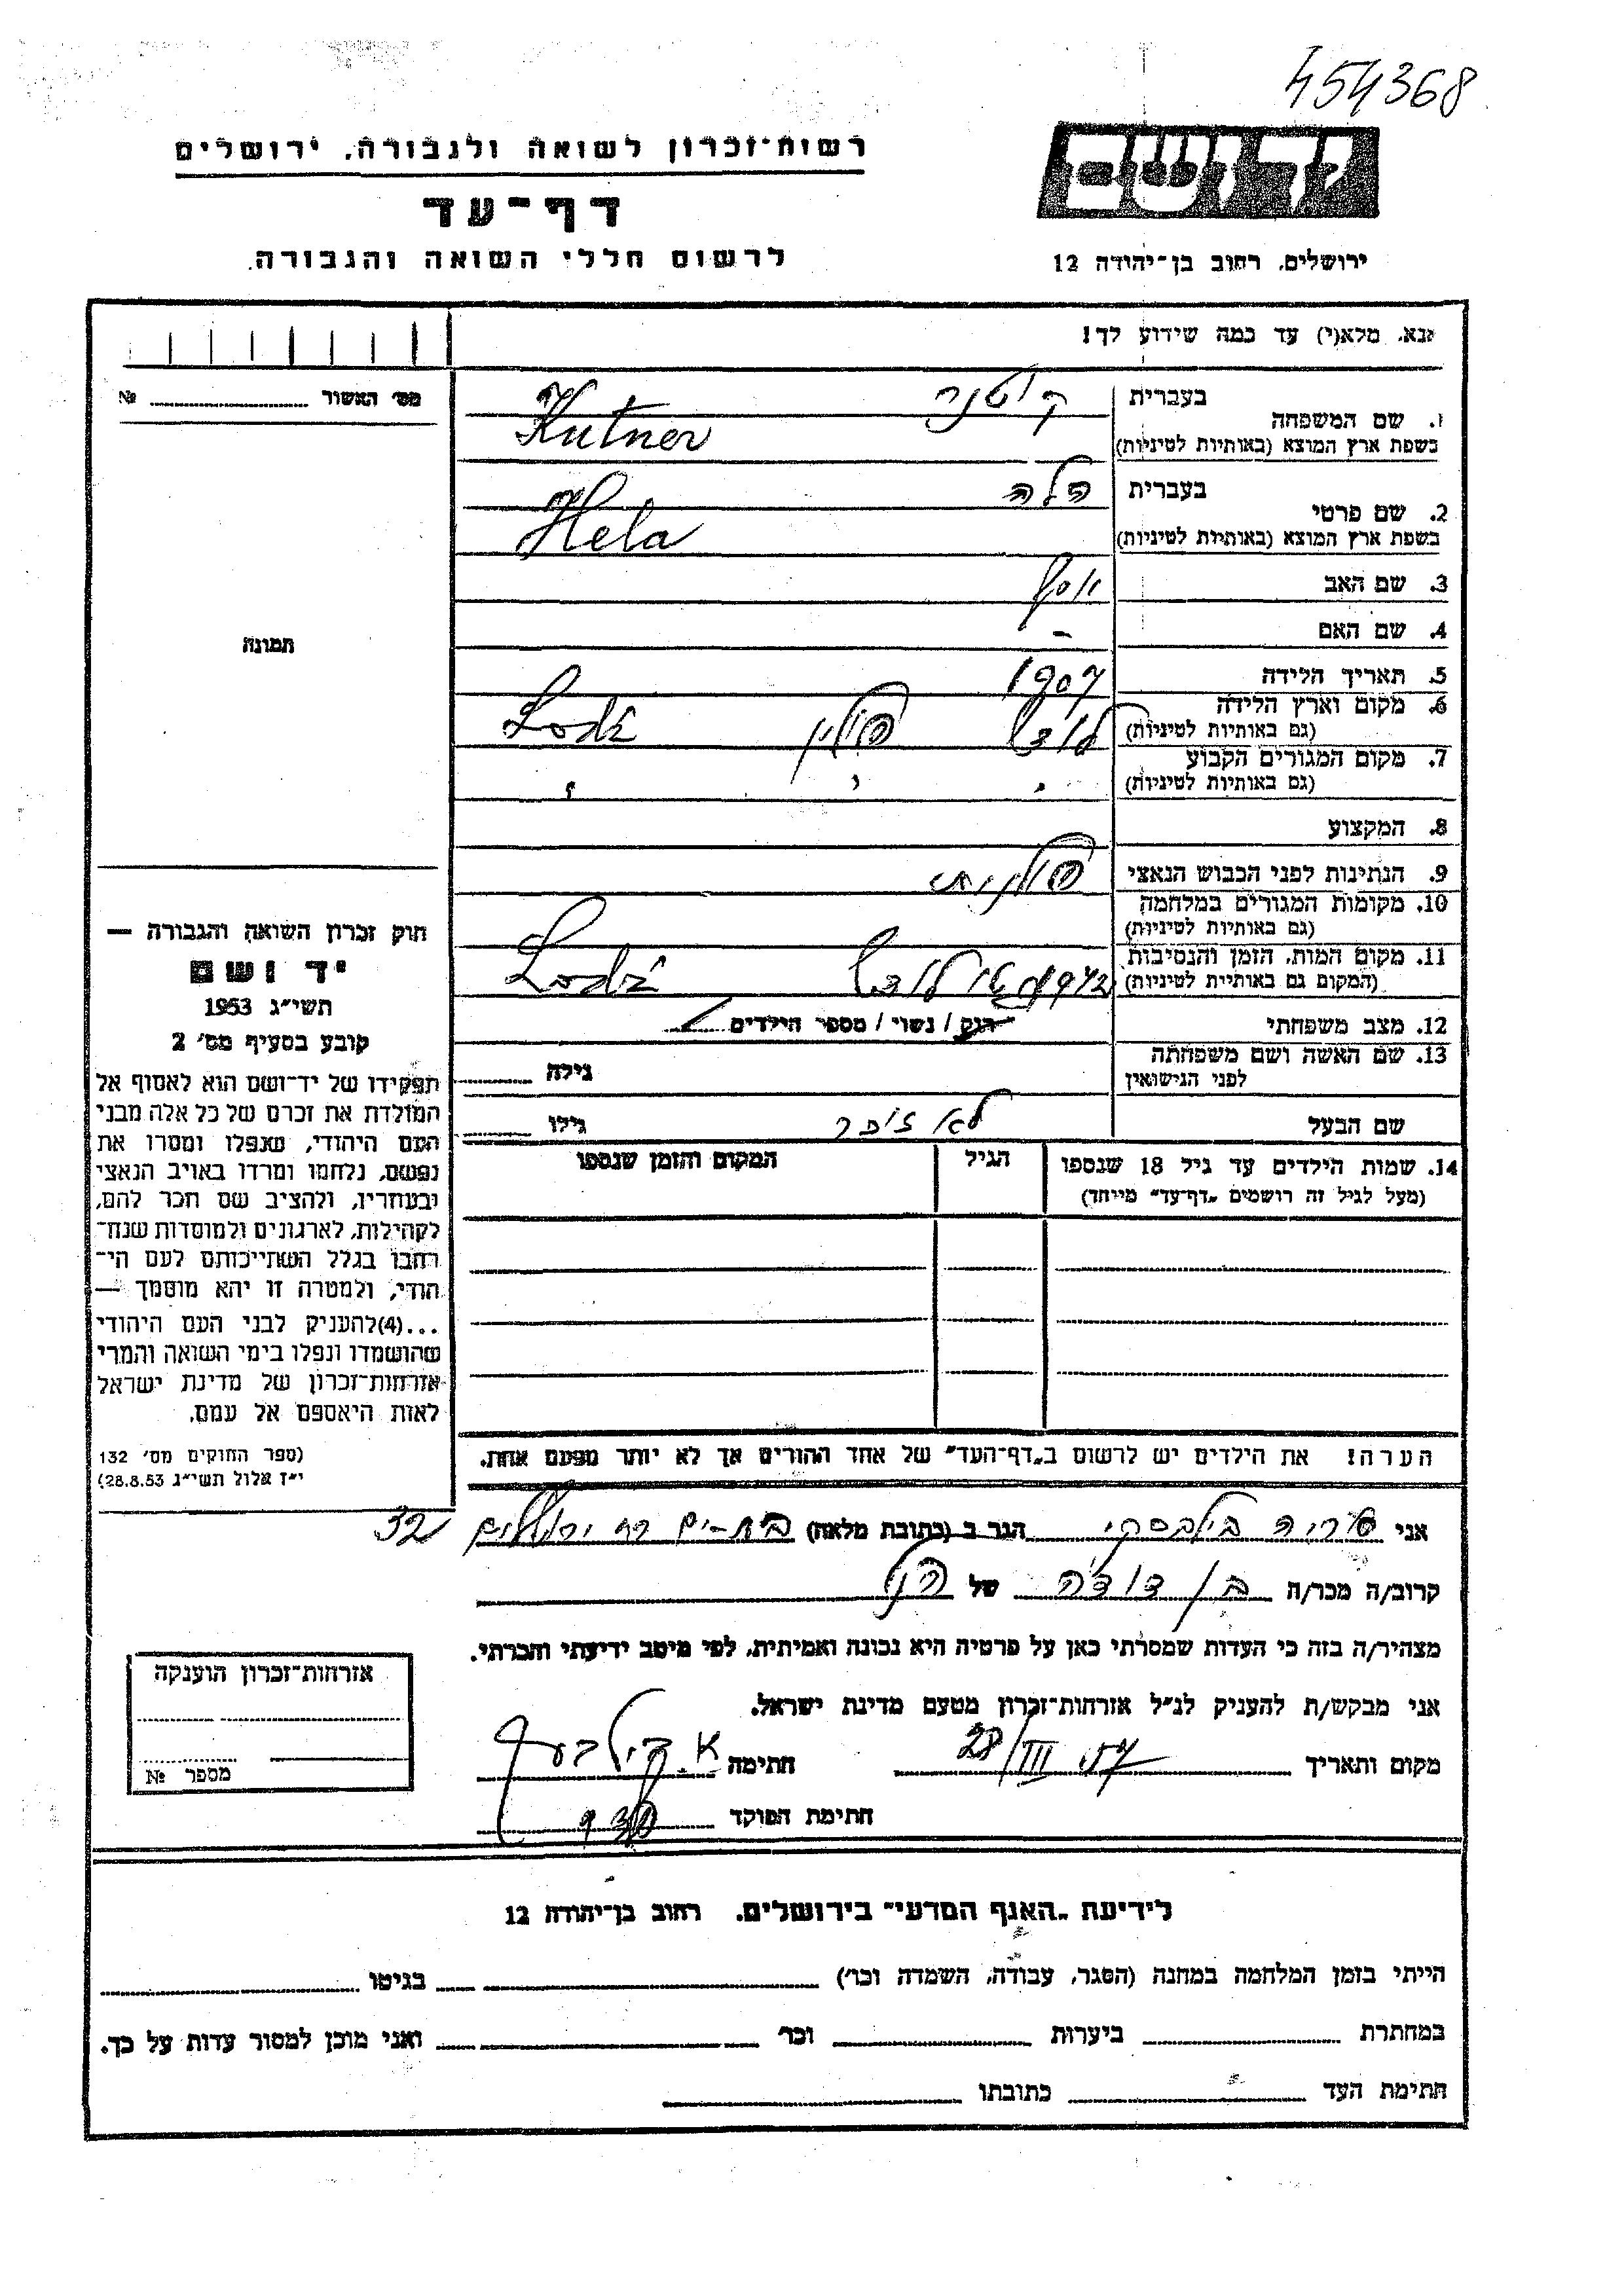 454368
יד ושם
רשות-זכרון לשואה ולגבורה, ירושלים
דף-עד
לרשום חללי השואה והגבורה.
ירושלים, רחוב בן-יהודה 12
נא, מלא(י) עד כמה שידוע לך!
מס' האשור №
1. שם המשפחה
בעברית קוטנר
בשפת ארץ המוצא (באותיות לטיניות) Kutner
2. שם פרטי
בעברית הלה
בשפת ארץ המוצא (באותיות לטיניות) Hela
3. שם האב יוסף
4. שם האם -
תמונה
5. תאריך הלידה 1907
6. מקום וארץ הלידה לודז' פולין Lodź
(גם באותיות לטיניות)
7. מקום המגורים הקבוע " " "
(גם באותיות לטיניות)
8. המקצוע
9. הנתינות לפני הכבוש הנאצי פולנית
10. מקומות המגורים במלחמה
(גם באותיות לטיניות)
11. מקום המות, הזמן והנסיבות 1942 גטו לודז' Lodź
(המקום גם באותיות לטיניות)
12. מצב משפחתי רוק / נשוי / מספר הילדים
13. שם האשה ושם משפחתה גילה
לפני הנישואין
שם הבעל לא זוכר גילו
14. שמות הילדים עד גיל 18 שנספו הגיל המקום והזמן שנספו
(מעל לגיל זה רושמים „דף-עד" מיוחד)
חוק זכרון השואה והגבורה —
יד ושם
תשי"ג 1953
קובע בסעיף מס' 2
תפקידו של יד-ושם הוא לאסוף אל
המולדת את זכרם של כל אלה מבני
העם היהודי, שנפלו ומסרו את
נפשם, נלחמו ומרדו באויב הנאצי
ובעוזריו, ולהציב שם וזכר להם,
לקהילות, לארגונים ולמוסדות שנח-
רבו בגלל השתייכותם לעם הי-
הודי, ולמטרה זו יהא מוסמך —
...(4)להעניק לבני העם היהודי
שהושמדו ונפלו בימי השואה והמרי
אזרחות-זכרון של מדינת ישראל
לאות היאספם אל עמם.
(ספר החוקים מס' 132
י"ז אלול תשי"ג 28.8.53)
הערה! את הילדים יש לרשום ב„דף-העד" של אחד ההורים אך לא יותר מפעם אחת.
אני אריה בילבסקי הגר ב (כתובת מלאה) בת-ים רח ירושלים 32
קרוב/ה מכר/ה בן דודה של הנ"ל
מצהיר/ה בזה כי העדות שמסרתי כאן על פרטיה היא נכונה ואמיתית, לפי מיטב ידיעתי והכרתי.
אני מבקש/ת להעניק לנ"ל אזרחות-זכרון מטעם מדינת ישראל.
מקום ותאריך 28/III חתימה
חתימת הפוקד
אזרחות-זכרון הוענקה
מספר №
לידיעת „האגף המדעי" בירושלים, רחוב בן-יהודה 12
הייתי בזמן המלחמה במחנה (הסגר, עבודה, השמדה וכו') בגיטו
במחתרת ביערות וכו' ואני מוכן למסור עדות על כך.
חתימת העד כתובתו